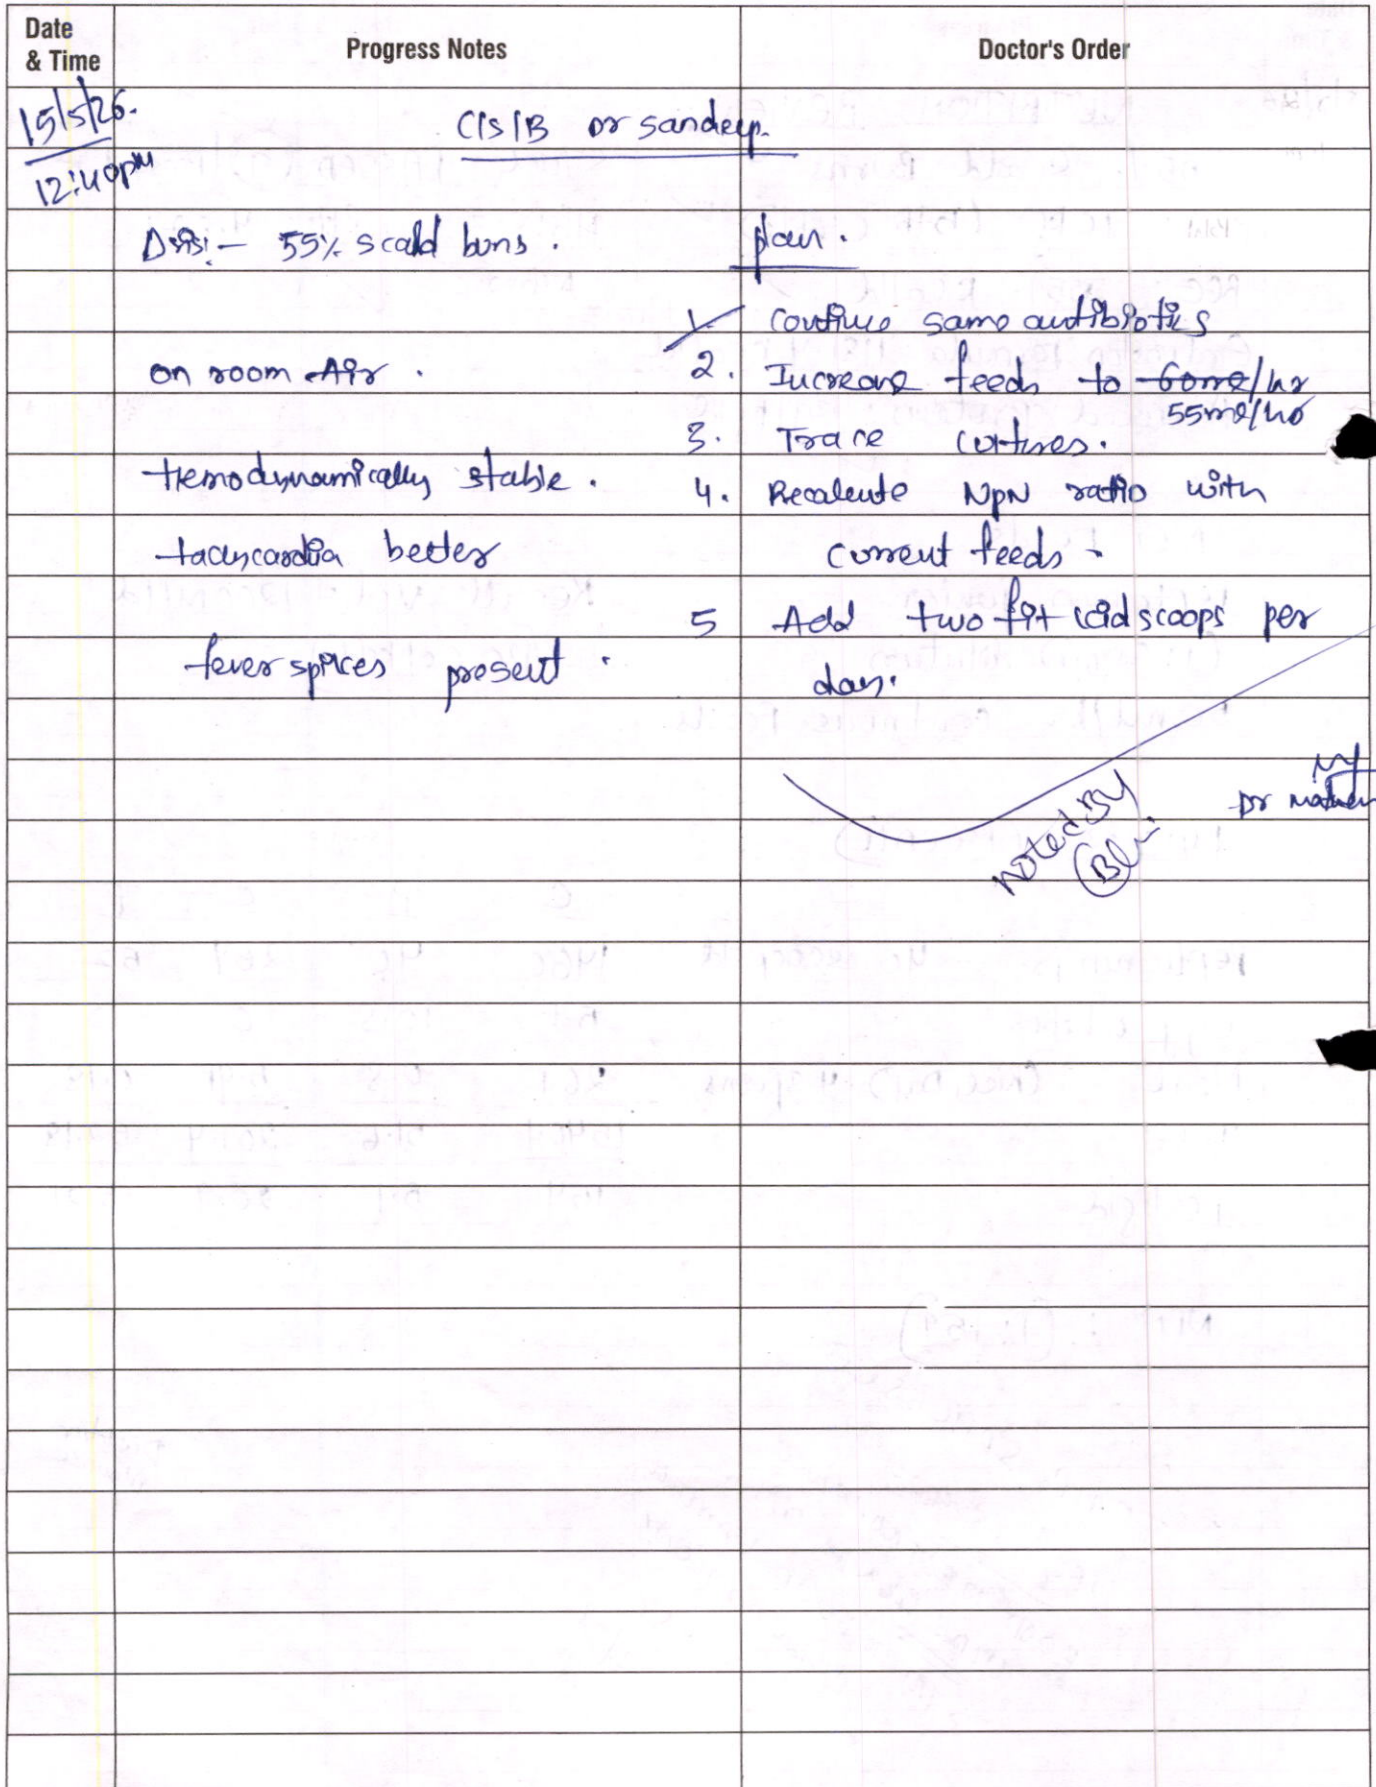 Date & Time
Progress Notes
Doctor's Order
15/5/26.
12:40pm
C/S/B Dr Sandeep.
55% scald burns.
plan.
1. Continue same antibiotics
on room Air.
2. Increase feeds to 60ml/hr
55ml/hr
3. Trace cultures.
Hemodynamically stable.
4. Recalculate NPN ratio with
tachycardia better
current feeds.
5 Add two scoops per
fever spikes present.
day.
Noted By
Dr